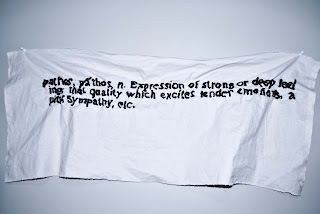 pathos, pāthos, n. Expression of strong or deep feel
ing; that quality which excites tender emotions, a
pity, sympathy, etc.